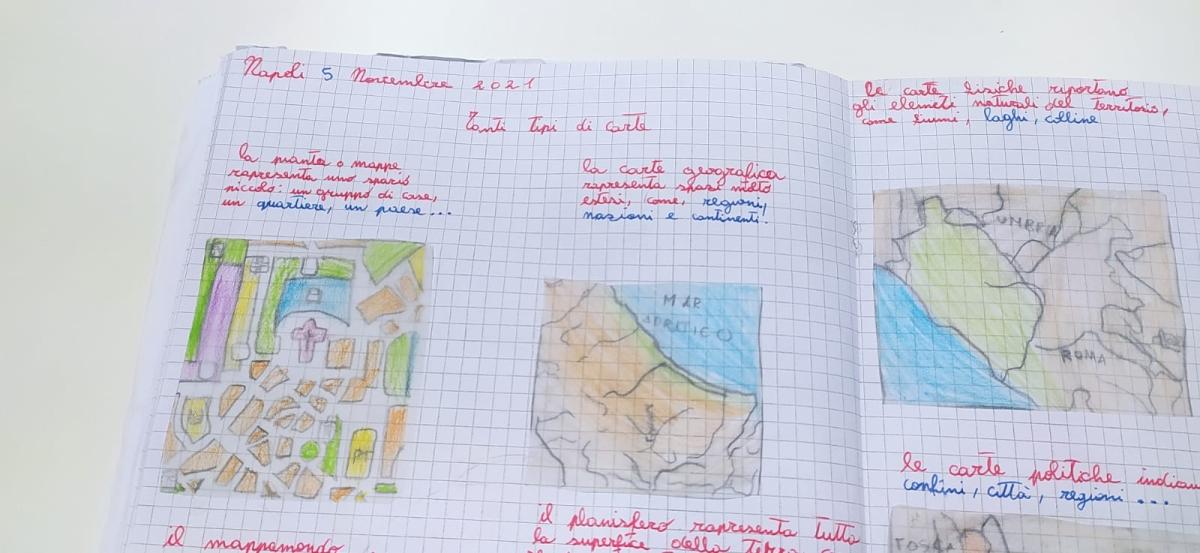 Napoli 5 Novembre 2021
Tanti tipi di carte
la pianta o mappe
rapresenta uno spazio
piccolo: un gruppo di case,
un quartiere, un paese...
la carte geografica
rapresenta spazi molto
estesi, come, regioni,
nazioni e continenti.
MAR
ADRIATICO
il mappamondo
il planisfero rapresenta tutta
la superfice della Terra
le carte fisiche riportano
gli elemeti naturali del territorio,
come fiumi, laghi, colline
UMBRIA
ROMA
le carte politiche indicano
confini, città, regioni...